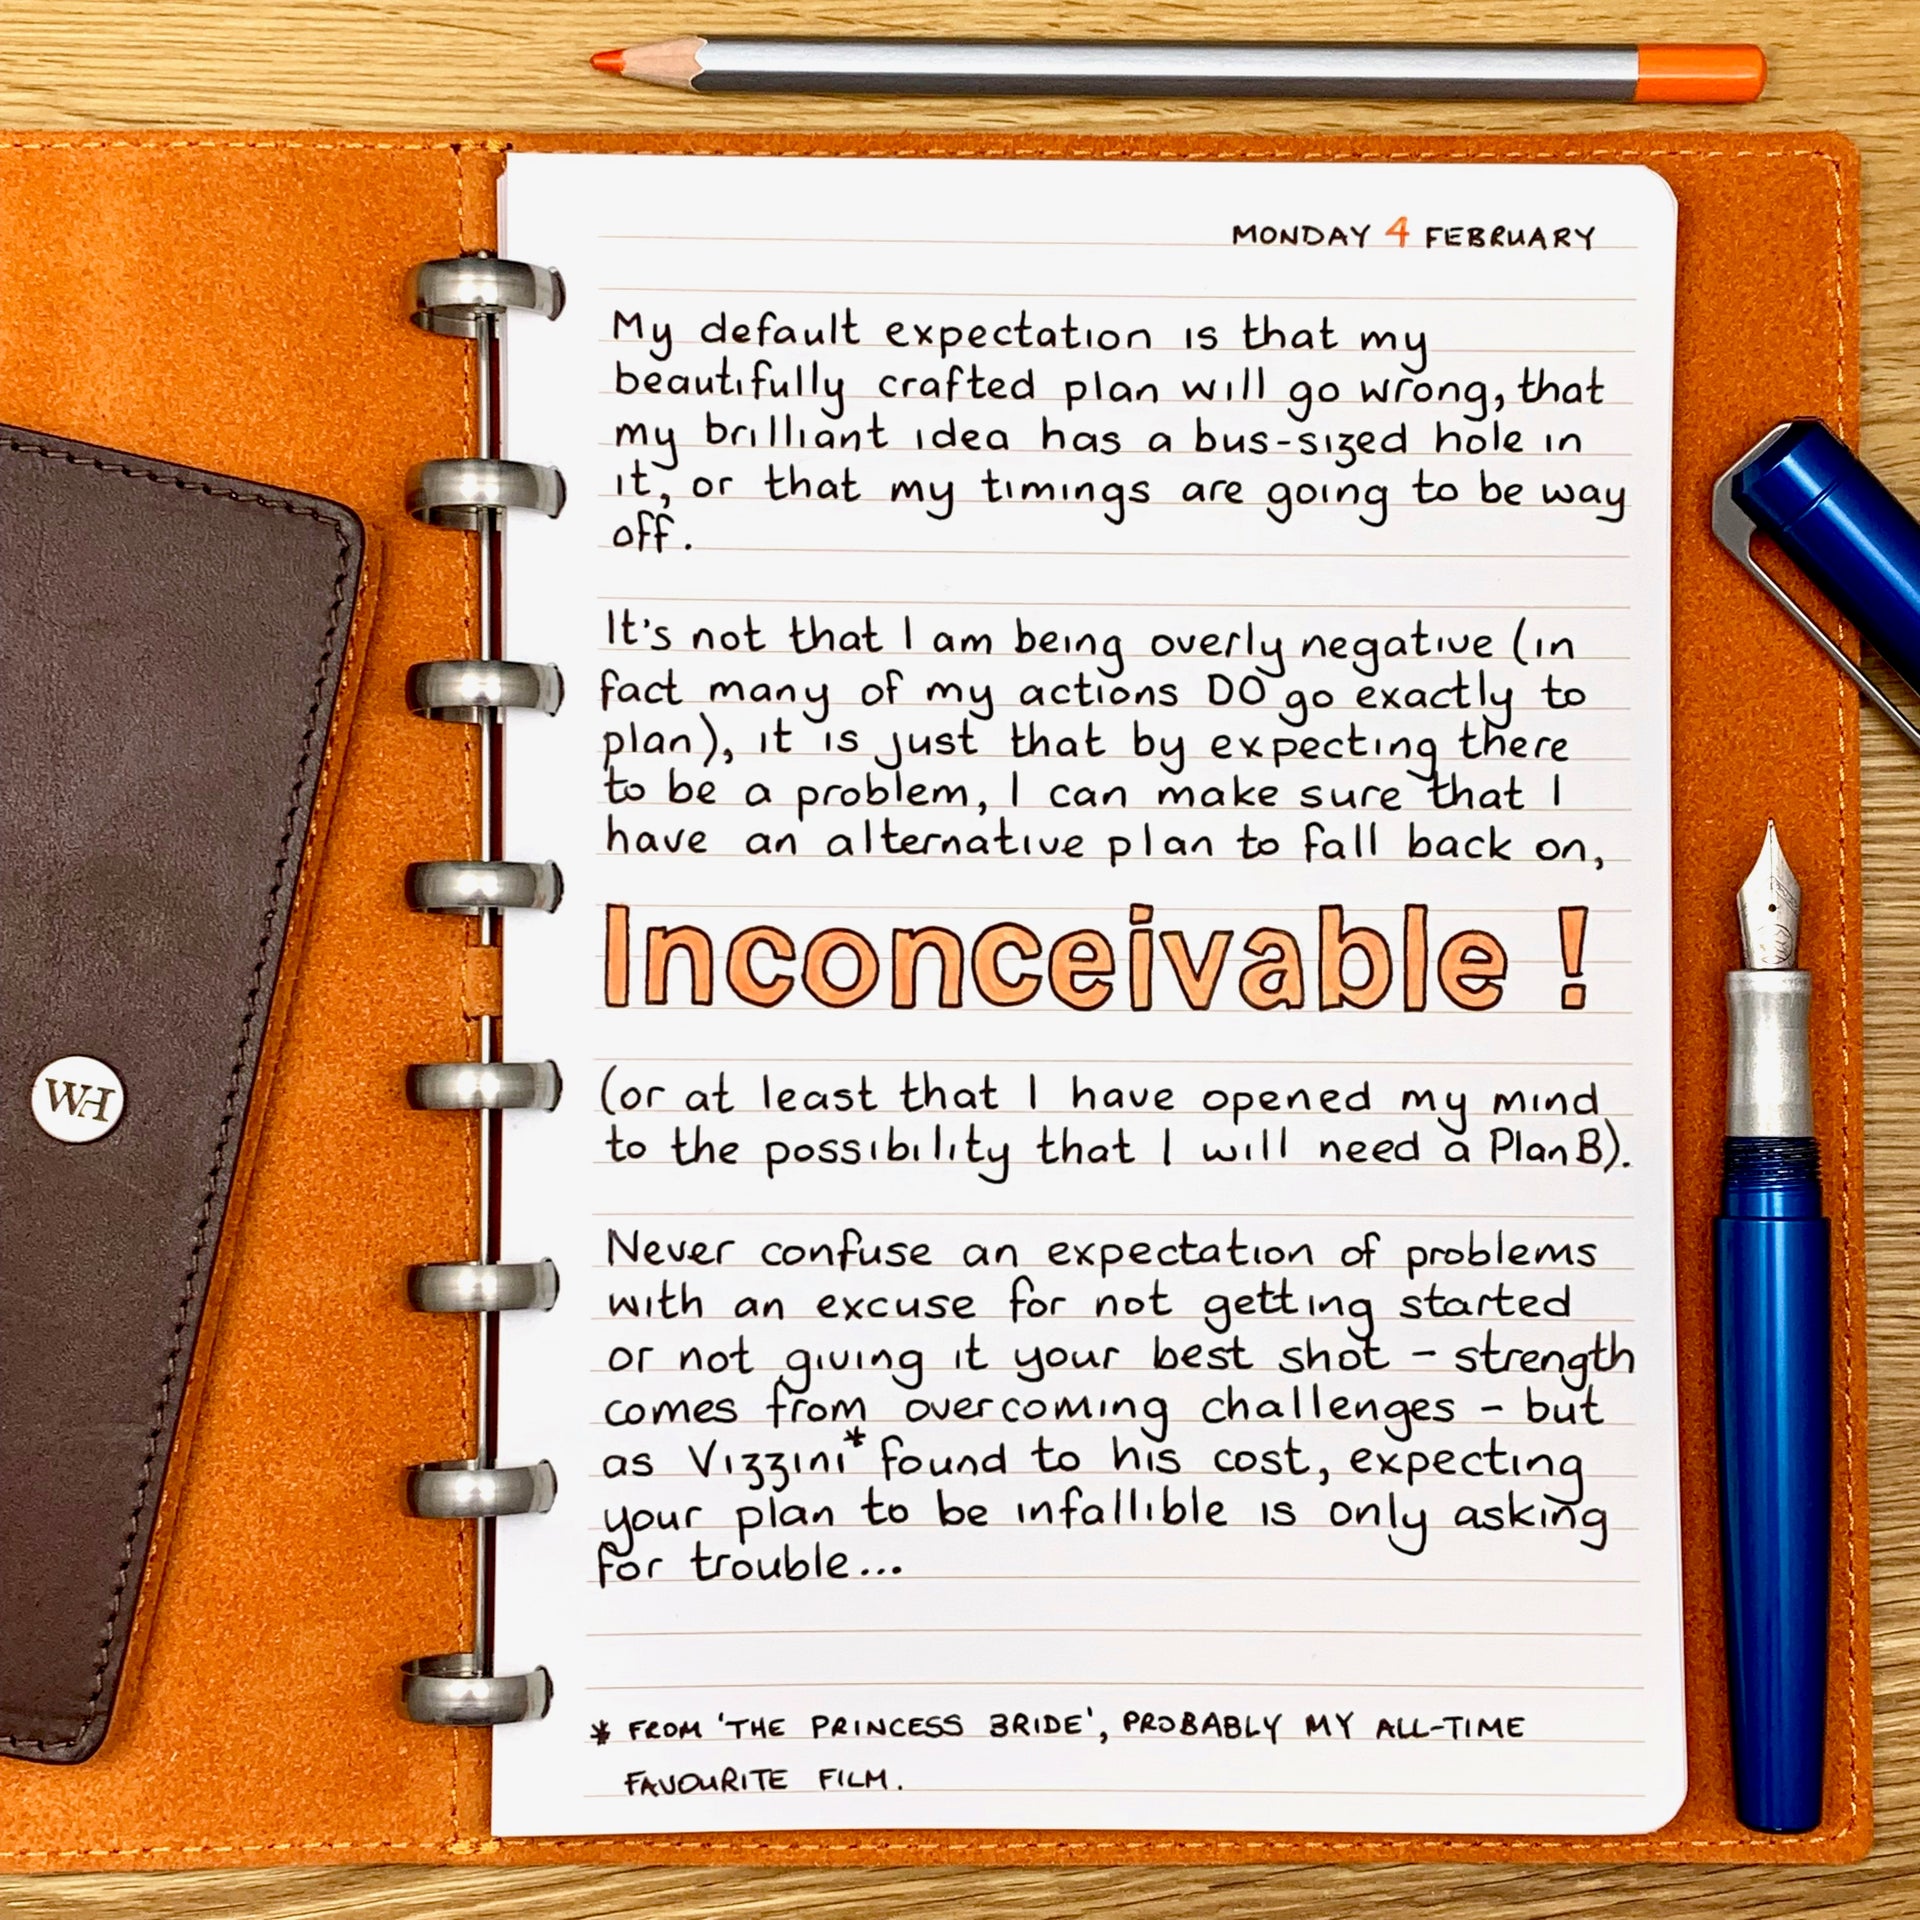 MONDAY 4 FEBRUARY
My default expectation is that my
beautifully crafted plan will go wrong, that
my brilliant idea has a bus-sized hole in
it, or that my timings are going to be way
off.
It's not that I am being overly negative (in
fact many of my actions DO go exactly to
plan), it is just that by expecting there
to be a problem, I can make sure that I
have an alternative plan to fall back on,
Inconceivable !
(or at least that I have opened my mind
to the possibility that I will need a Plan B).
Never confuse an expectation of problems
with an excuse for not getting started
or not giving it your best shot - strength
comes from overcoming challenges - but
as Vizzini* found to his cost, expecting
your plan to be infallible is only asking
for trouble...
* FROM 'THE PRINCESS BRIDE', PROBABLY MY ALL-TIME
FAVOURITE FILM.
WH